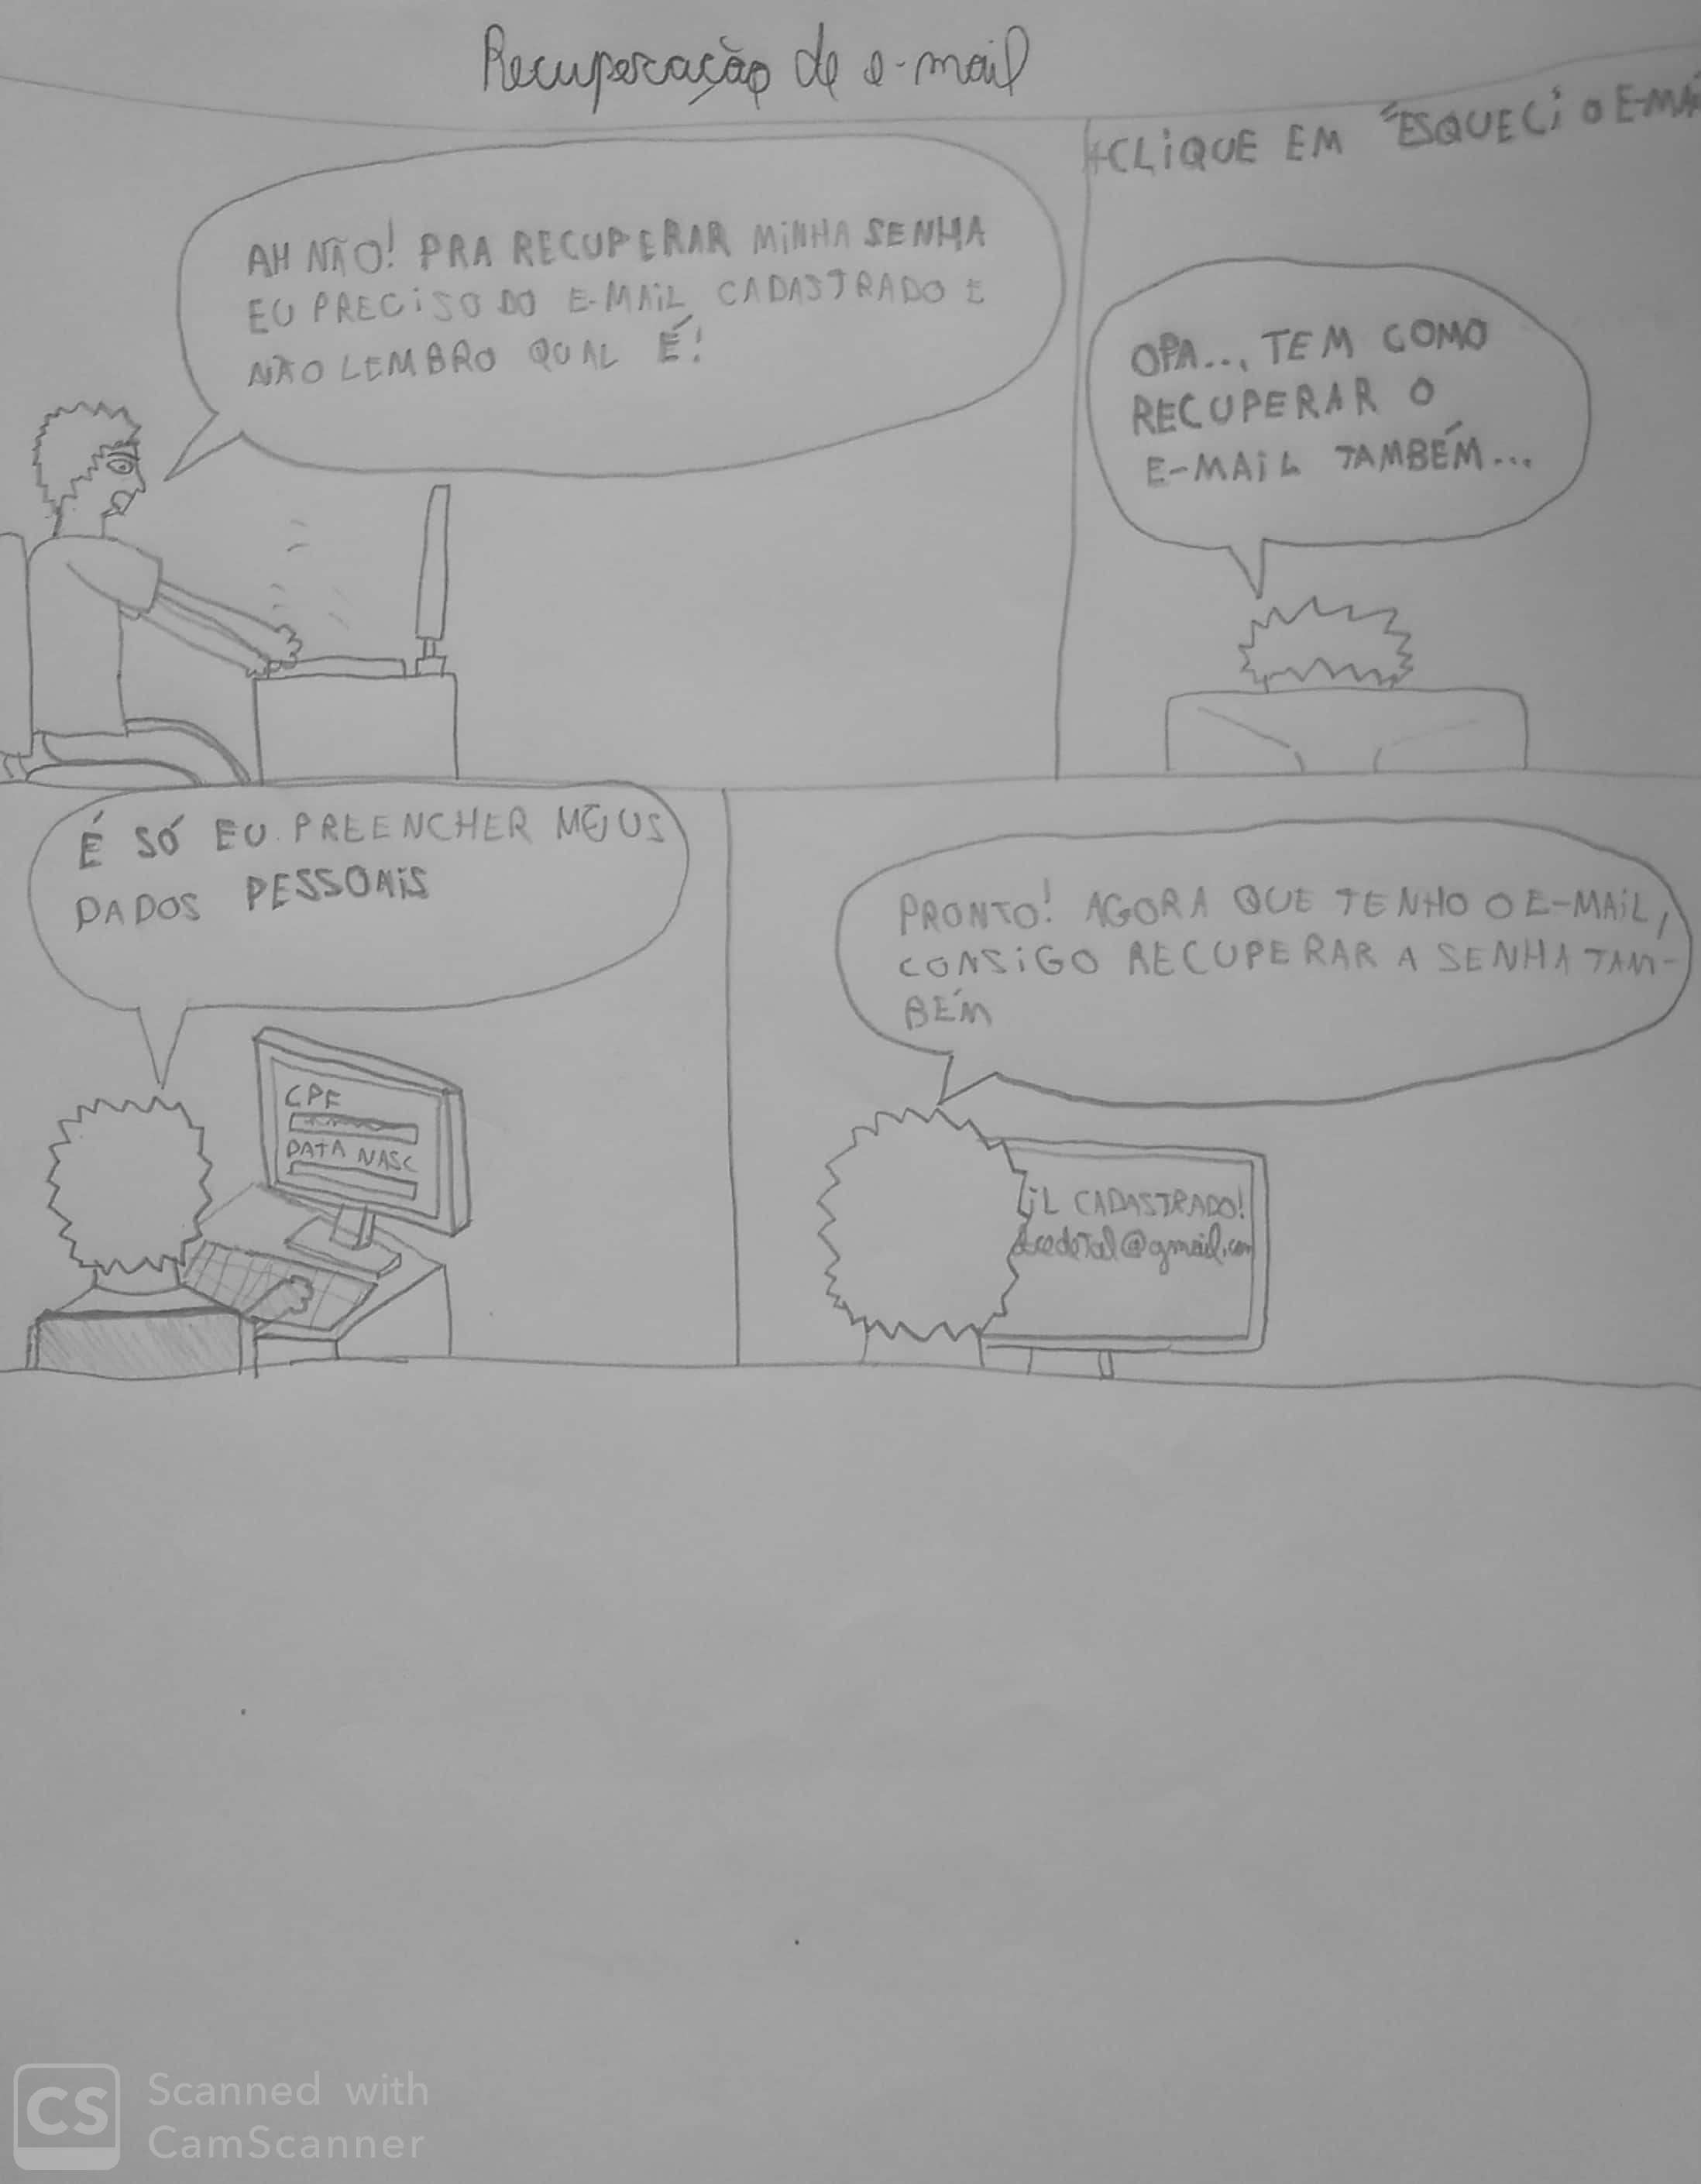 Recuperação de e-mail
AH NÃO! PRA RECUPERAR MINHA SENHA
EU PRECISO DO E-MAIL CADASTRADO E
NÃO LEMBRO QUAL É!
+CLIQUE EM "ESQUECI O E-MAI
OPA... TEM COMO
RECUPERAR O
E-MAIL TAMBÉM...
É SÓ EU PREENCHER MEUS
DADOS PESSOAIS
CPF
DATA NASC
PRONTO! AGORA QUE TENHO O E-MAIL,
CONSIGO RECUPERAR A SENHA TAM-
BÉM
IL CADASTRADO!
@gmail.com
CS Scanned with
CamScanner